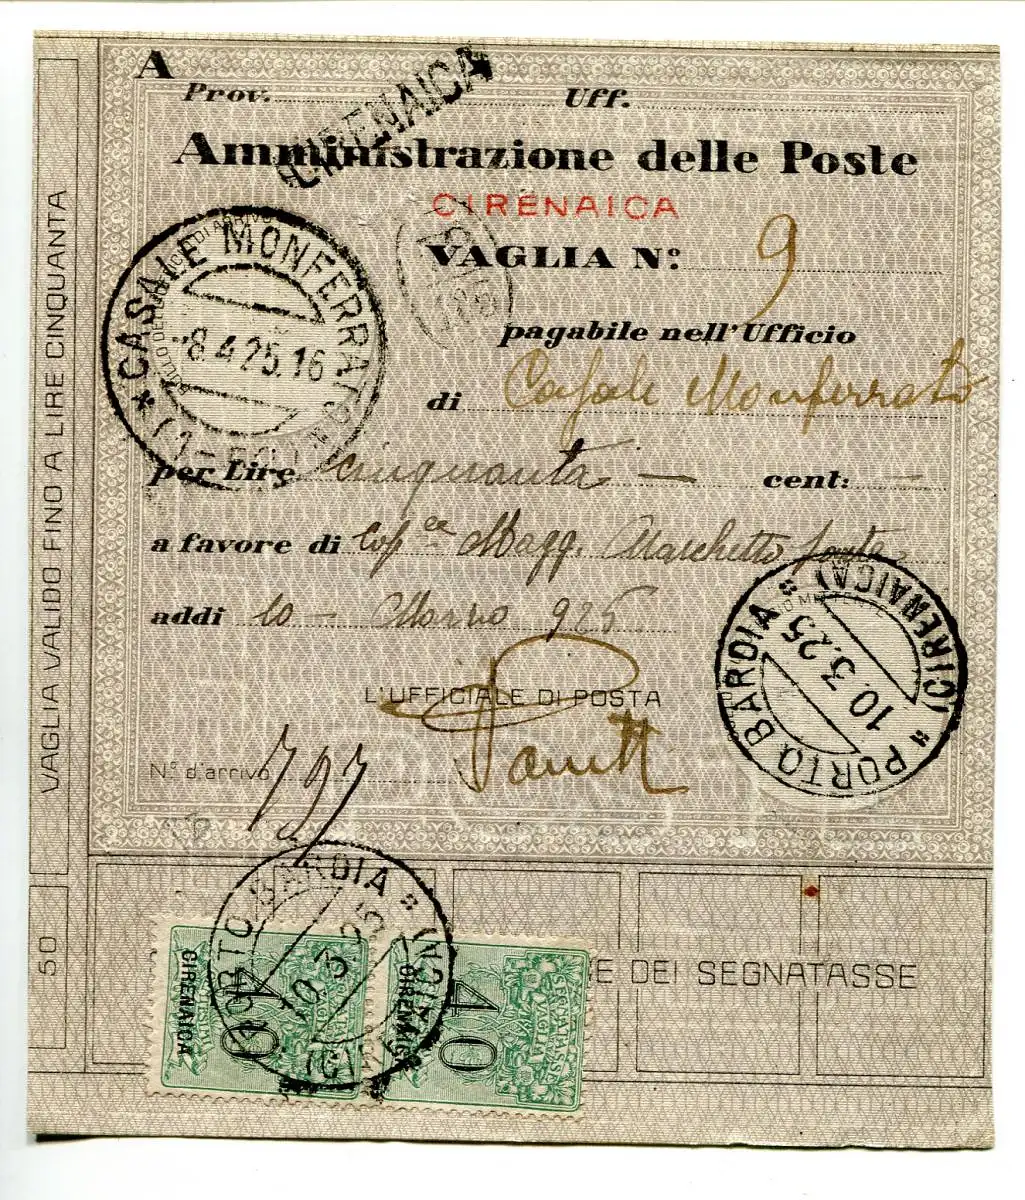 A
Prov. Uff.
CIRENAICA
Amministrazione delle Poste
CIRENAICA
VAGLIA N.º 9
pagabile nell'Ufficio
di Casale Monferrato
per Lire cinquanta — cent: —
a favore di Magg. Marchetto
addi 10 - Marzo 925
L'UFFICIALE DI POSTA
N.º d'arrivo 797
CASALE MONFERRATO
8.4.25.16
PORTO BARDIA * (CIRENAICA) *
10.3.25
VAGLIA VALIDO FINO A LIRE CINQUANTA
50
E DEI SEGNATASSE
PORTO BARDIA * (CIRENAICA)
10.3.25
CIRENAICA
40
SEGNATASSE
VAGLIA
CIRENAICA
40
SEGNATASSE
VAGLIA